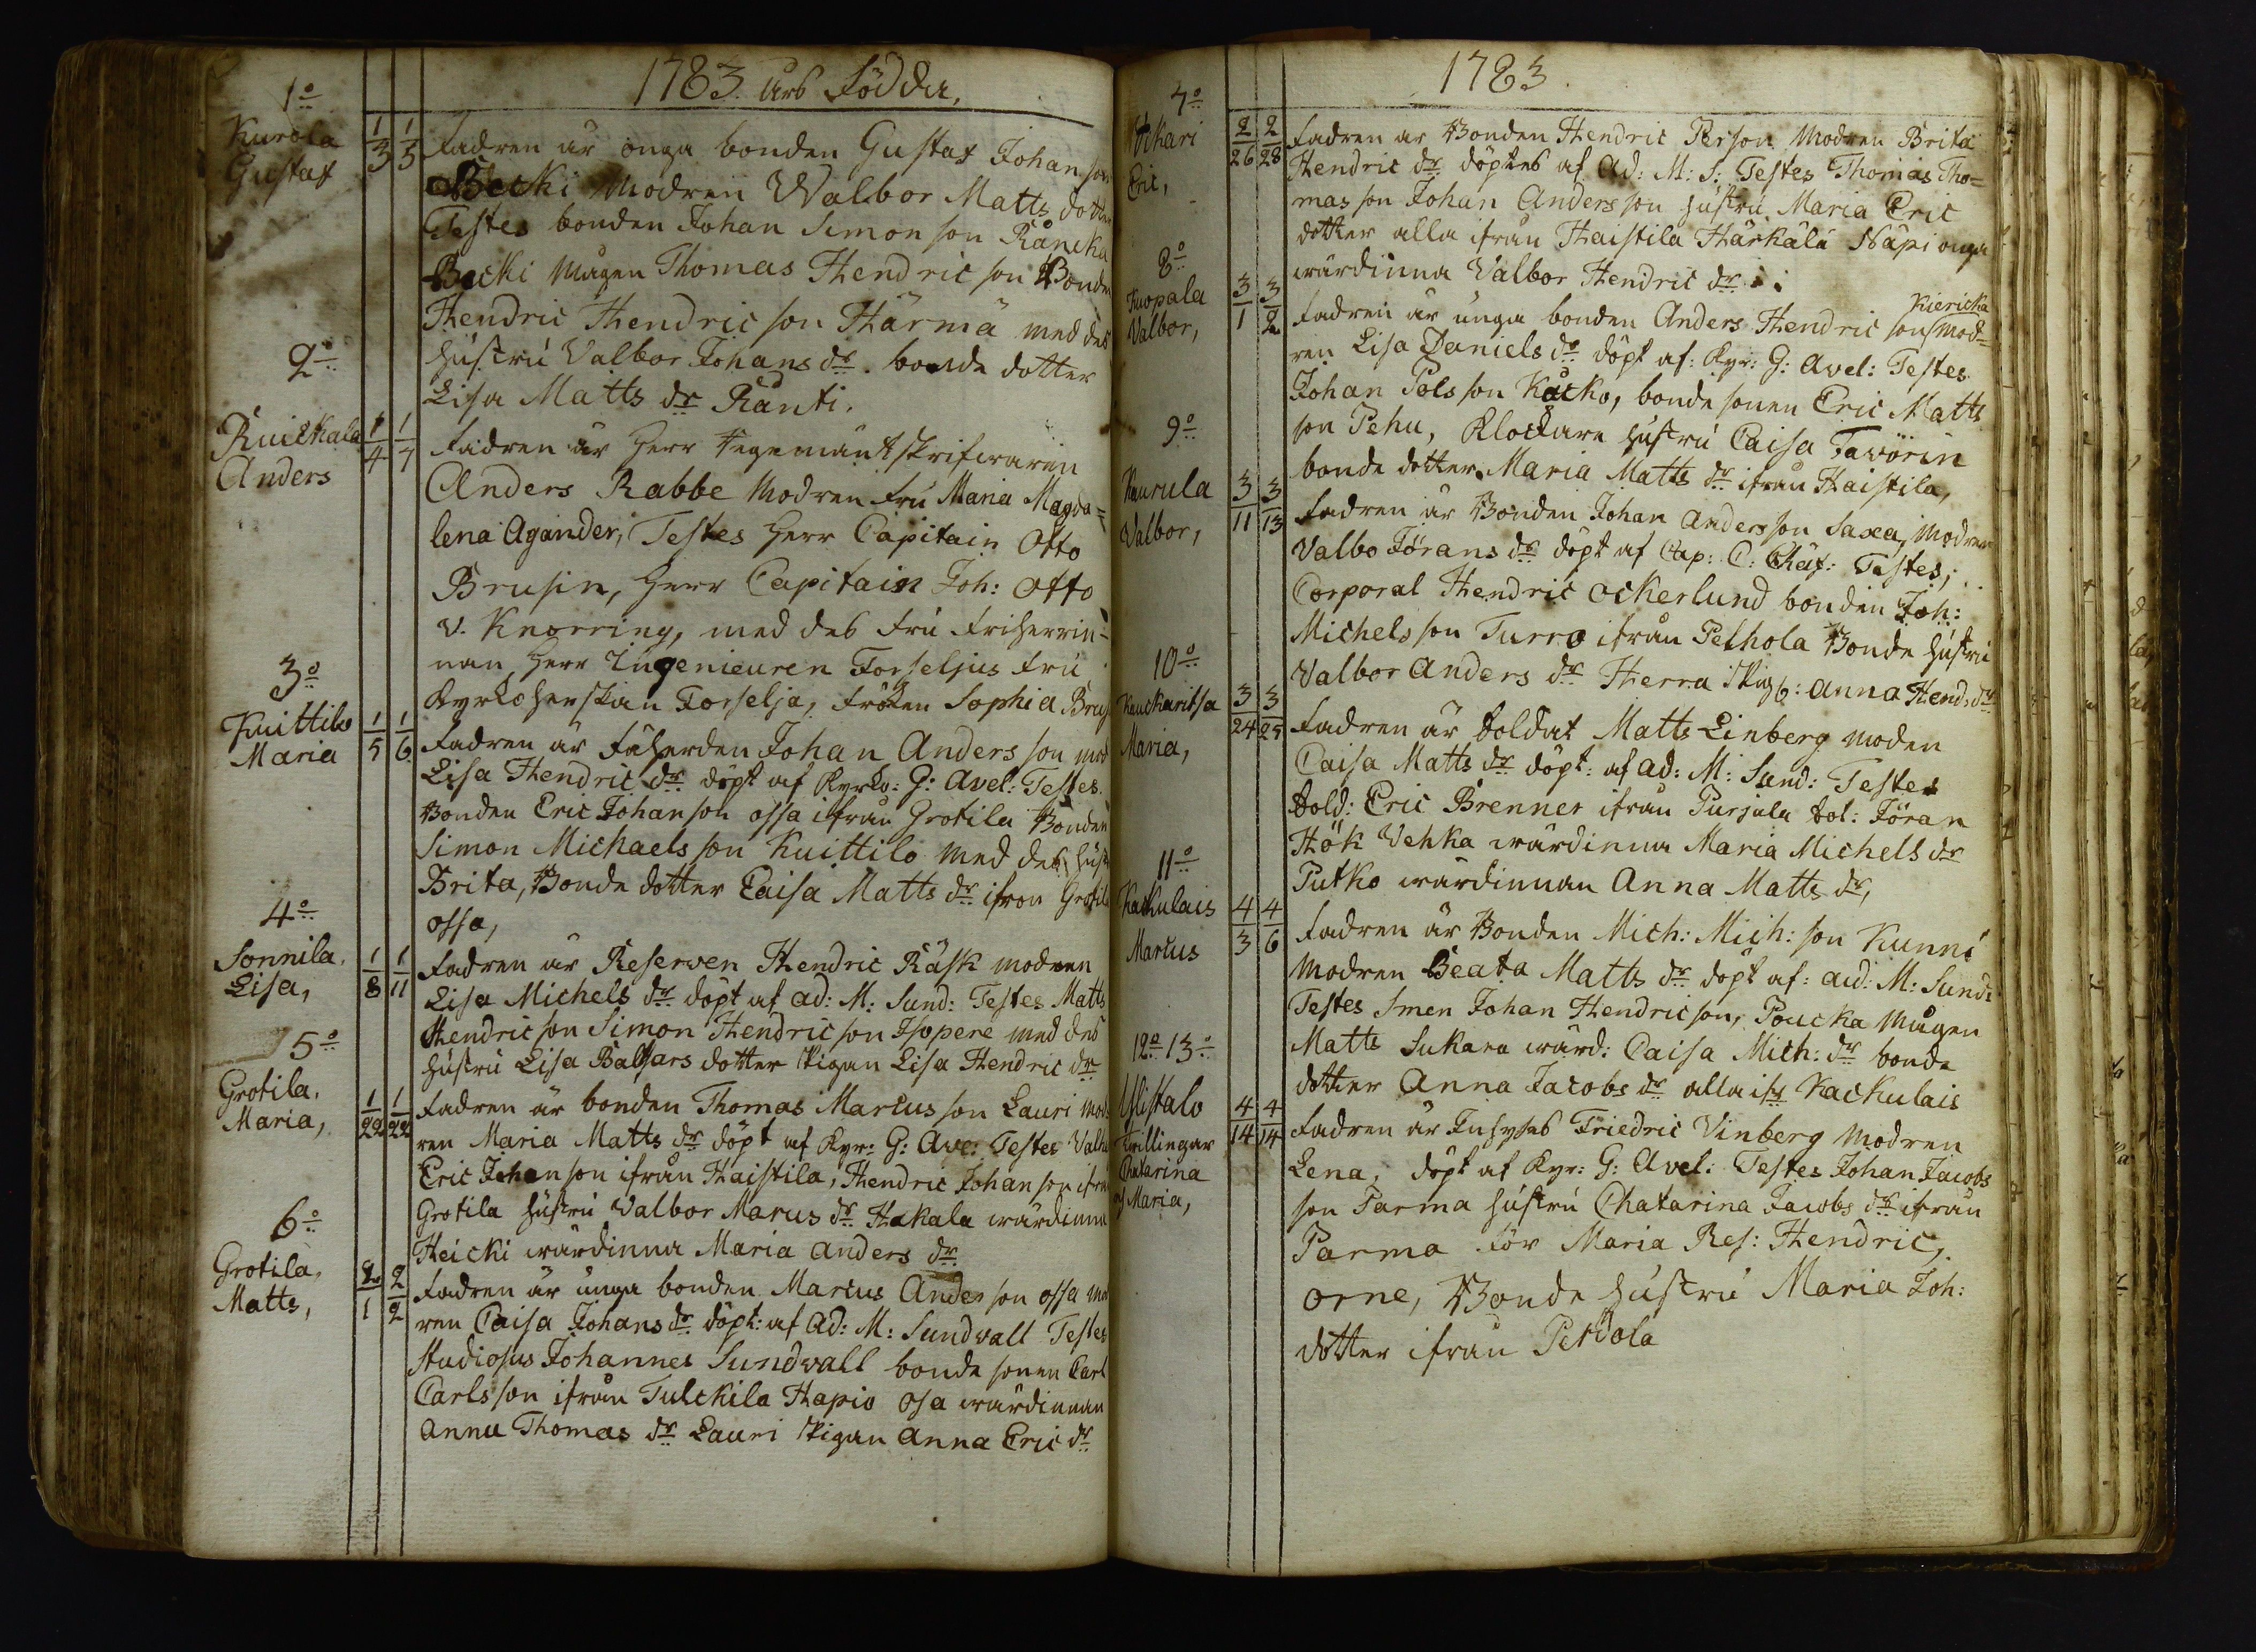 1783. Års Födder.
1o
Kurola
Gustaf
1/3 1/5
Fadren är onga bonden Gustaf Johan son
Becki Modren Walbor Matts dotter
Testes bonden Johan Simon son Råncka
Becki Mågen Thomas Hendric son Bonden
Hendric Hendric son Härmä med des
hustru Valbor Johans dr. bonde dotter
Lisa Matts dr Ranti.
2o
Kuickala
Anders
1/4 1/7
Fadren är Herr Regemänt skrifvaren
Anders Rabbe Modren fru Maria Magda=
lena Agander, Testes Herr Capitain Otto
Brusin, Herr Capitain Joh: Otto
v. Knorring, med des fru friherrin=
nan, Herr Ingenieuren Forseljus fru
Kyrkoherskan Forselja, fröken Sophia Brus
3o
Kuittilo
Maria
1/5 1/6
Fadren är Fäherden Johan Anders son mod
Lisa Hendric dr döpt af Kyrko: G: Avel: Testes.
Bonden Eric Johan son ossa ifrån Grotila Bonden
Simon Michaels son Kuittilo med des hust
Brita, Bonde dotter Caisa Matts dr ifron Grotila
ossa,
4o
Sonnila.
Lisa,
1/8 1/11
Fadren är Reserven Hendric Räsk modren
Lisa Michels dr döpt af ad: M: Sund: Testes Matts
Hendric son Simon Hendric son Isopere med des
hustru Lisa Balsars dotter Pigan Lisa Hendric dr
5o
Grotila.
Maria,
1/22 1/22
Fadren är bonden Thomas Marcus son Lauri mod
ren Maria Matts dr döpt af Kyr: G: Ave: Testes
Eric Johan son ifrån Haistila, Hendric Johan son ifrå
Grotila hustru Valbor Marus dr Hakala wärdinna
Heicki wärdinna Maria Anders dr
6o
Grotila,
Matts,
2/1 2/2
Fadren är unga bonden Marcus Ander son ossa mo
ren Caisa Johans dr döpt: af Ad: M: Sundvall Testes
Studiosus Johannes Sundvall bonde sonen Carl
Carls son ifrån Tulckila Hapio osa wärdinnan
Anna Thomas dr Lauri Pigan Anna Eric dr
1783.
7o
Vikari
Eric,
2/26 2/28
Fadren är Bonden Hendric Person Modren Brita
Hendric dr döptes af Ad: M: S: Testes Thomas Tho=
mas son Johan Anders son hustru Maria Eric
dotter alla ifrån Haistila Härkälä Näpi onga
wärdinna Valbor Hendric dr
8o
Kuopala
Valbor,
3/1 3/2
Kiericka
Fadren är unga bonden Anders Hendric son Mod=
ren Lisa Daniels dr döpt af: Kyr: G: Avel: Testes
Johan Pols son Kåcko, bonde sonen Eric Matts
son Pehu, Klockare hustru Caisa Tavörin
bonde dotter Maria Matts dr ifrån Haistila,
9o
Kaurula
Valbor,
3/11 3/13
Fadren är Bonden Johan Anders son Saxa, Modren
Valbo Jörans dr döpt af Cap: C: Chäf: Testes;
Corporal Hendric Ockerlund bonden Joh:
Michels son Turro ifrån Pelhola Bonde hustru
Valbor Anders dr Herra Pig: Anna Hend: dr
10o
Kauckaritsa
Maria,
3/24 3/25
Fadren är Soldat Matts Linberg moden
Caisa Matts dr döpt: af ad: M: Sund: Testes
Sold: Eric Brenner ifrån Purjala Sol: Jöran
Hök Vehka wärdinna Maria Michels dr
Putko wärdinnan Anna Matts dr,
11o
Kackulais
Marcus
4/3 4/6
Fadren är Bonden Mich: Mich: son Kunni
Modren Beata Matts dr döpt af: ad: M: Sund:
Testes Smen Johan Hendric son, Poucka Mågen
Matts Sukara wärd: Caisa Mich: dr bonde
dotter Anna Jacobs dr alla ifr Kackulais
12o 13o
Ylistalo
Tvillingar
Chatarina
og Maria,
4/14 4/14
Fadren är Inhyses Friedric Vinberg Modren
Lena, döpt af Kyr: G: Avel: Testes Johan Jacobs
son Parma hustru Chatarina Jacobs dr ifrån
Parma för Maria Res: Hendric,
orne, Bonde hustru Maria Joh:
dotter ifrån Petdola